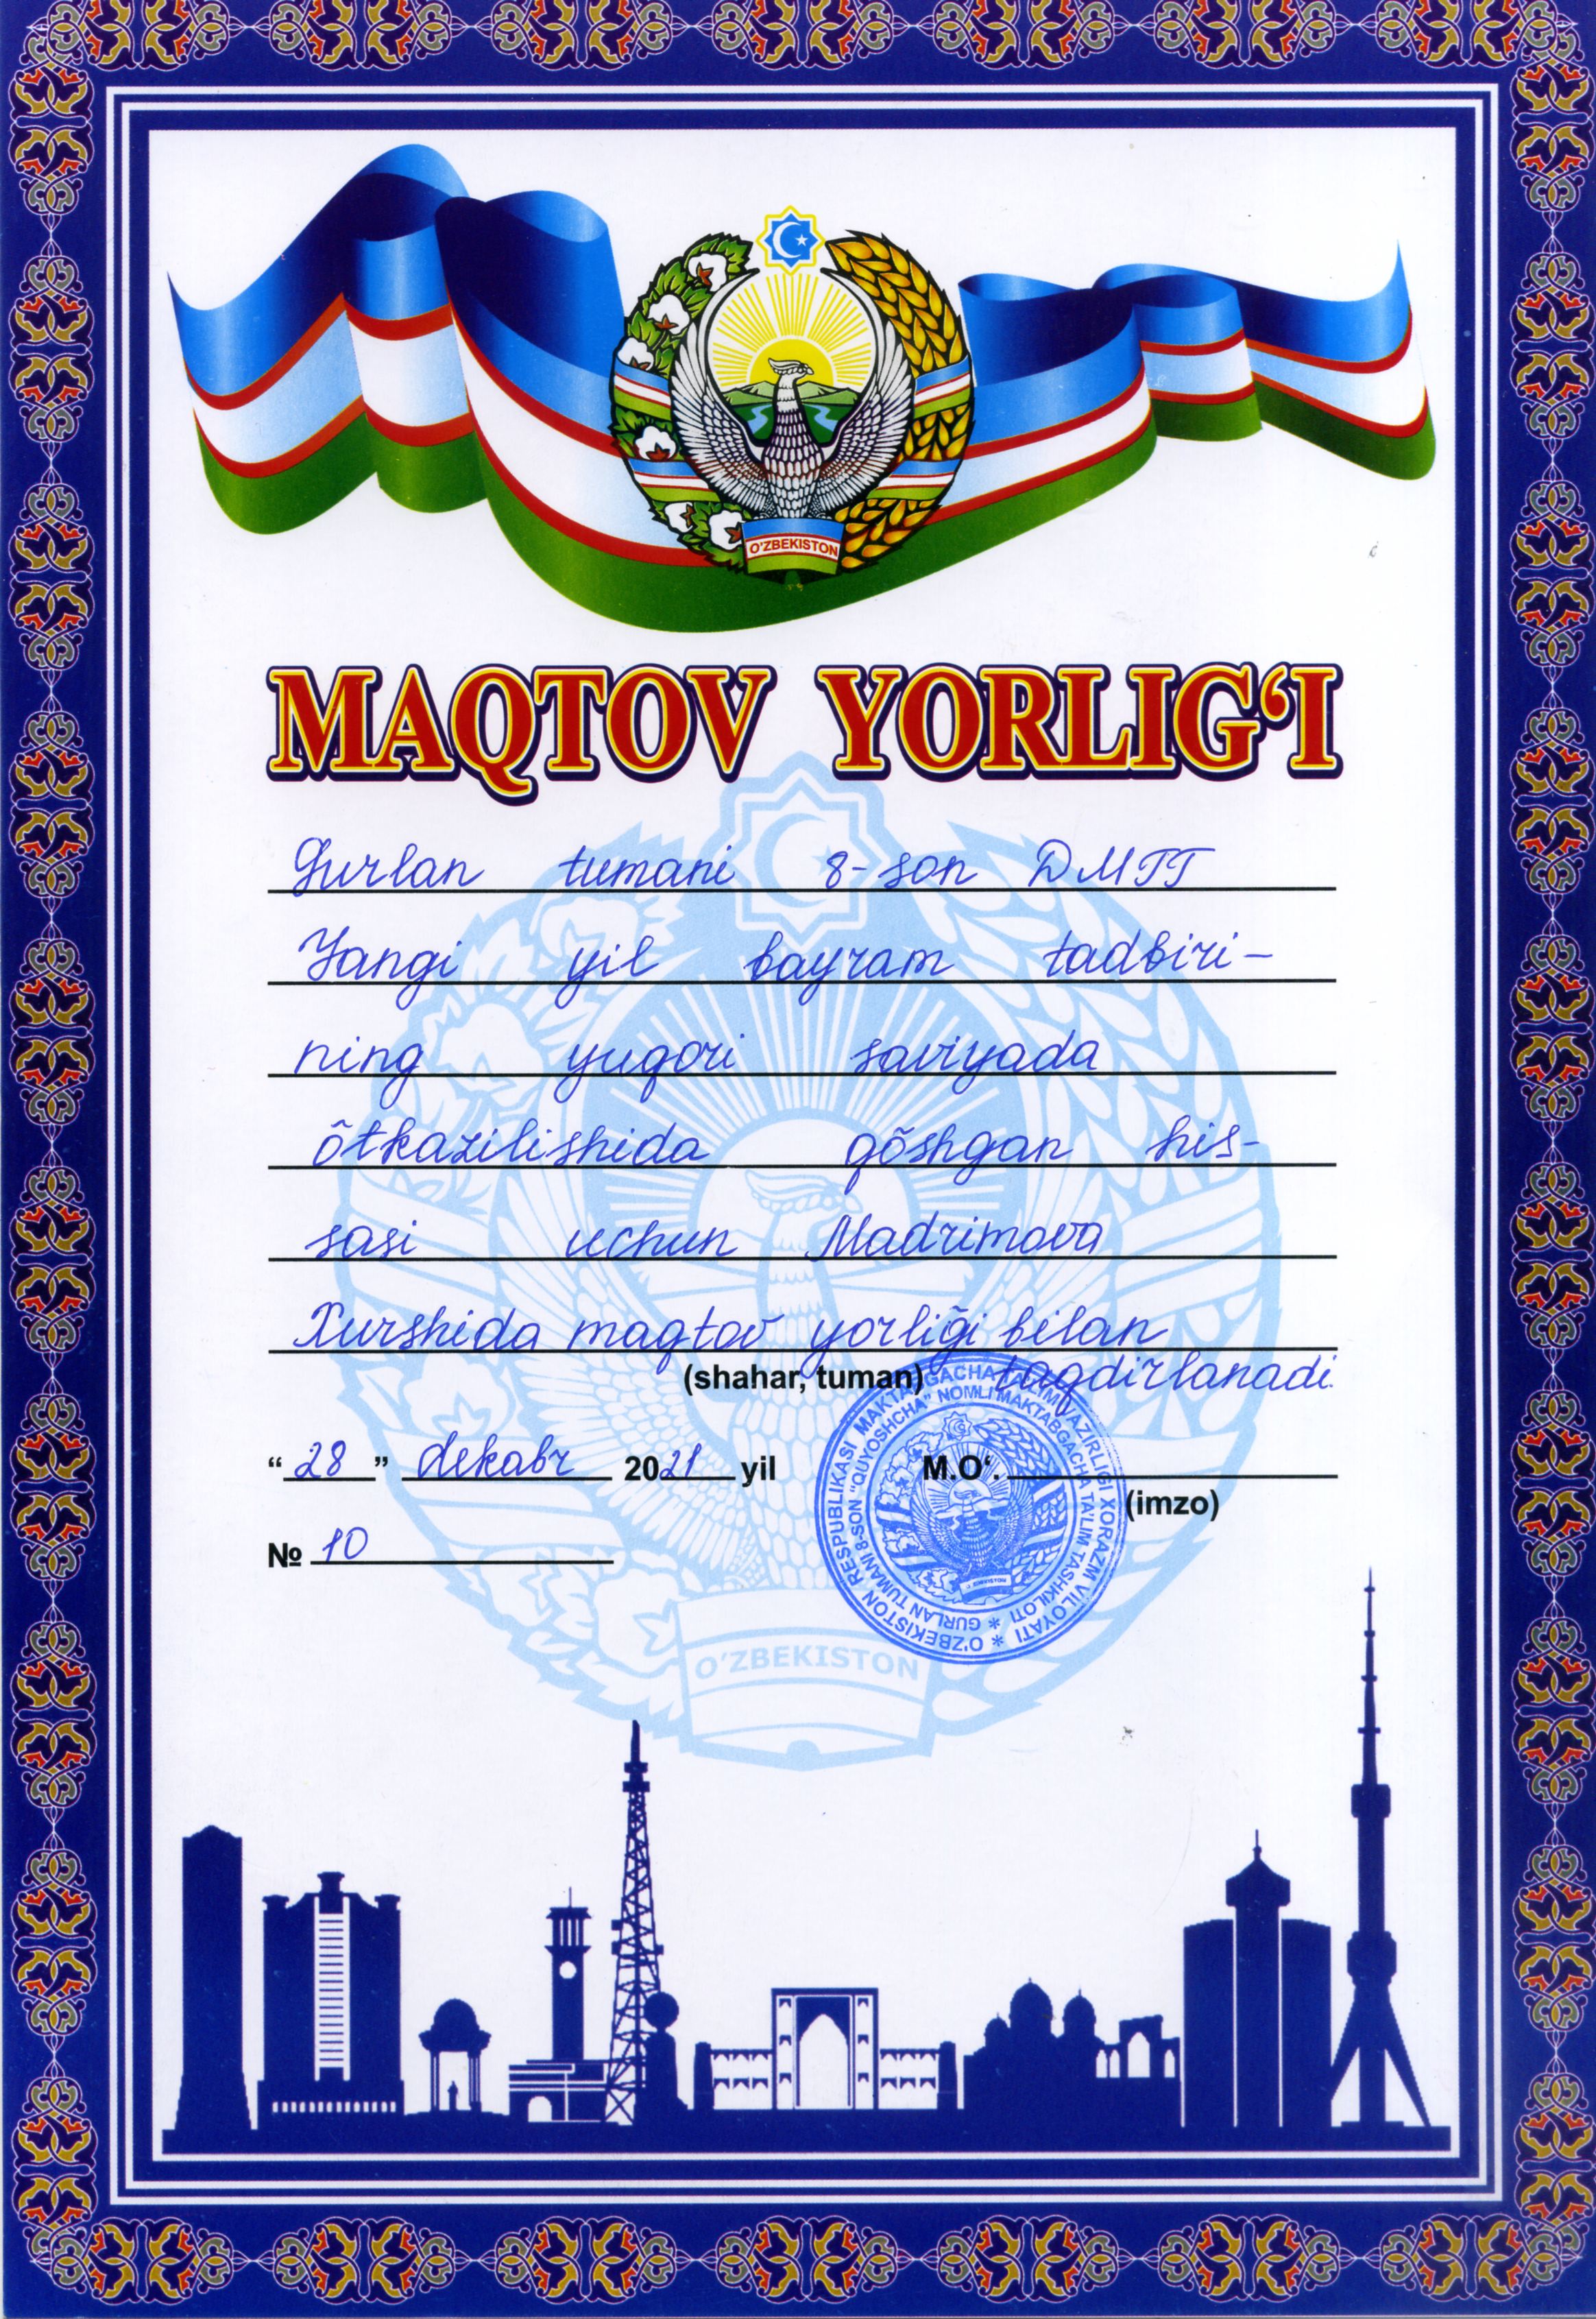 O'ZBEKISTON
MAQTOV YORLIG‘I
Gurlan tumani 8-son DMTT
Yangi yil bayram tadbiri-
ning yuqori saviyada
ôtkazilishida qõshgan his-
sasi uchun Madrimova
Xurshida maqtov yorliği bilan
(shahar, tuman) taqdirlanadi.
“28” dekabr 2021 yil M.O‘.
(imzo)
№ 10
O‘ZBEKISTON RESPUBLIKASI MAKTABGACHA TA'LIM VAZIRLIGI XORAZM VILOYATI
GURLAN TUMANI 8-SON "QUYOSHCHA" NOMLI MAKTABGACHA TA'LIM TASHKILOTI
O‘ZBEKISTON